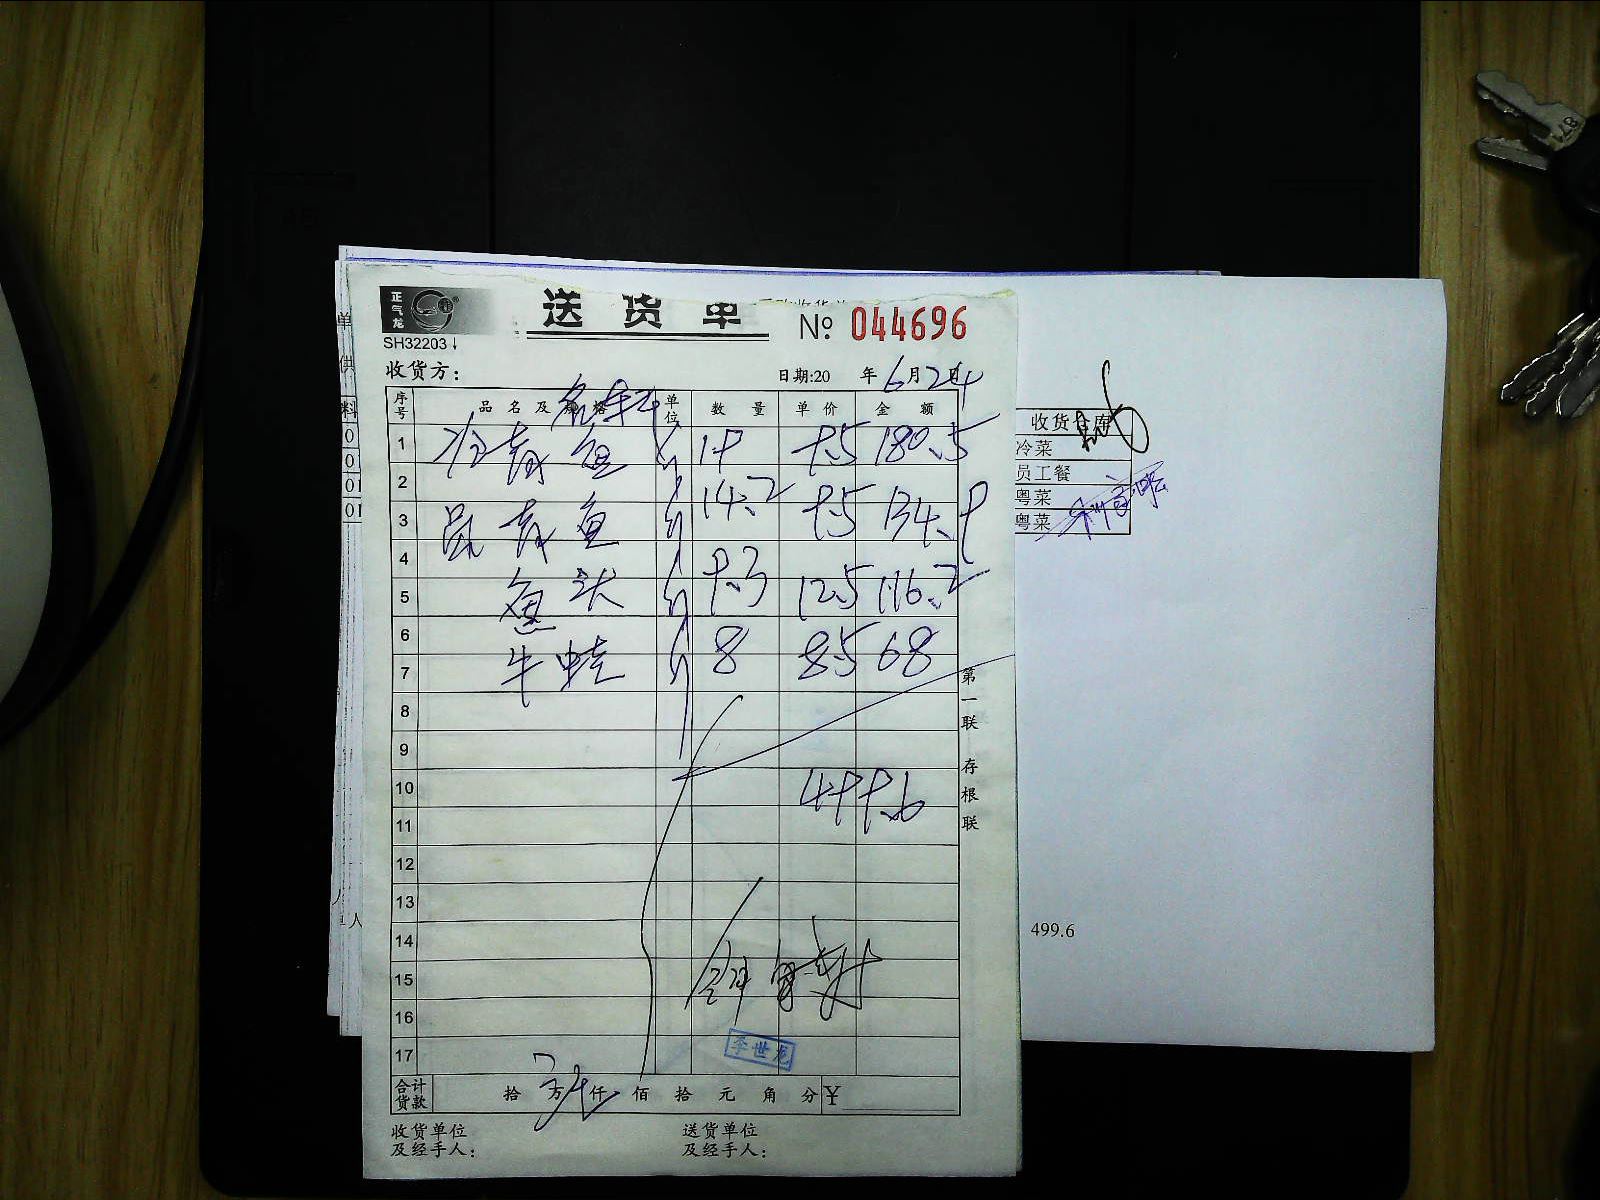 正气龙
送货单
№ 044696
SH32203↓
收货方:
日期:20 年6月24日
序号 品名及规格 单位 数量 单价 金额
1 冷青鱼 斤 19 9.5 180.5
2
3 青鱼 斤 14.2 9.5 134.9
4
5 鱼头 斤 9.3 12.5 116.2
6
7 牛蛙 斤 8 8.5 68
8
9
10 499.6
11
12
13
14
15
16
17
李世龙
合计货款 拾 万 仟 佰 拾 元 角 分 ¥
收货单位及经手人:
送货单位及经手人:
第一联 存根联
收货仓库
冷菜
员工餐
粤菜
粤菜
499.6
单
供
料
0
0
01
01
人